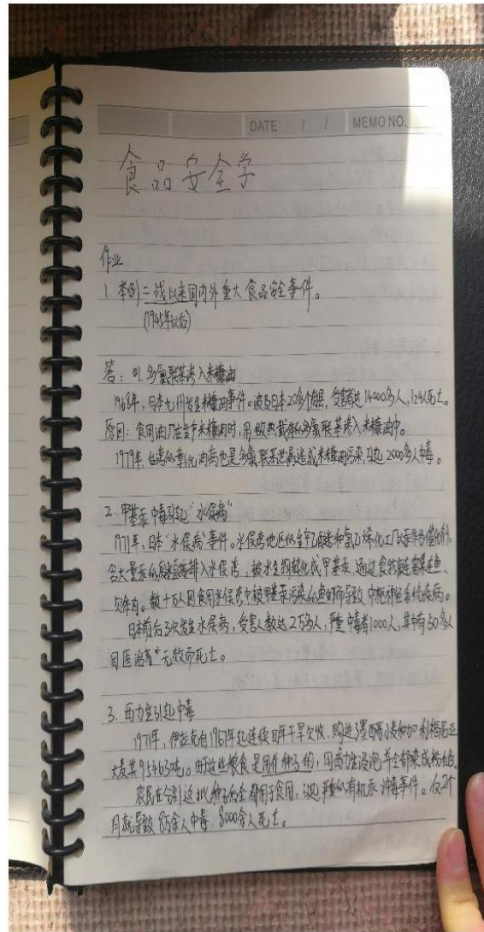 DATE / / MEMO NO.
食品安全学
作业
1. 举例二战以来国内外重大食品安全事件。
(1945年以后)
答: 01. 多氯联苯渗入米糠油
1968年,日本九州发生米糠油事件。波及日本20多个府县,受害者达14000多人,124人死亡。
原因:食用油厂在生产米糠油时,用做热载体的多氯联苯渗入米糠油中。
1979年,台湾的彰化油病也是多氯联苯泄漏造成米糠油污染,引起2000多人中毒。
2. 甲基汞中毒引起“水俣病”
1971年,日本“水俣病”事件。水俣湾地区的生产乙酸和氯乙烯化工厂以汞作为催化剂,
含大量汞的废水排入水俣湾,被水生物转化成甲基汞,通过食物链富集在鱼
贝体内。数十万人因食用水俣湾中被甲基汞污染的鱼贝而导致中枢神经系统疾病。
日本前后3次发生水俣病,受害人数达2.5万人,严重中毒者1000人,其中有50多人
因医治无效而死亡。
3. 西力生引起中毒
1971年,伊拉克自1967年起连续四年干旱欠收,购进墨西哥小麦和加利福尼亚
大麦共95463吨。由于这些粮食是用作种子的,用西力生浸润并全部染成粉红色。
农民在分到这批种子后全都用于食用,造成严重的有机汞中毒事件。仅2个
月就导致8万余人中毒,8000余人死亡。